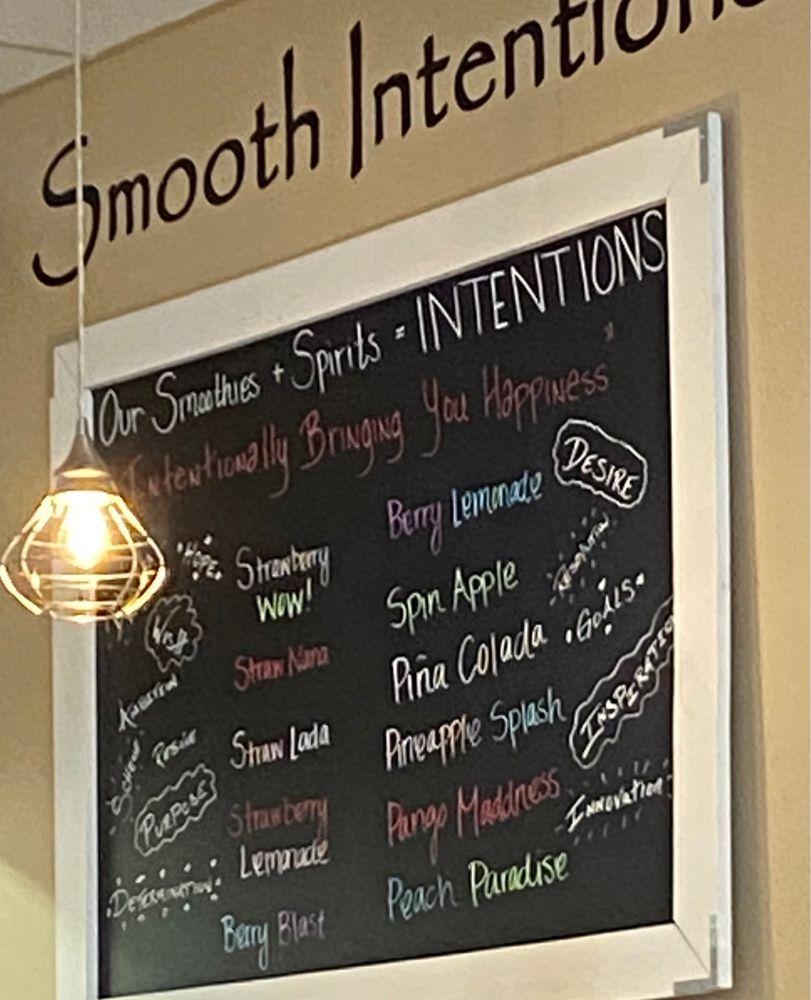 Smooth Intentions
Our Smoothies + Spirits = INTENTIONS
Intentionally Bringing You Happiness
HOPE
Strawberry
WOW!
Straw Nana
Straw Lada
Strawberry
Lemonade
Berry Blast
AMBITION
PURPOSE
DETERMINATION
Berry Lemonade
Spin Apple
Piña Colada
Pineapple Splash
Pango Maddness
Peach Paradise
DESIRE
RESOLUTION
GOALS
INSPIRATIO
INNOVATION